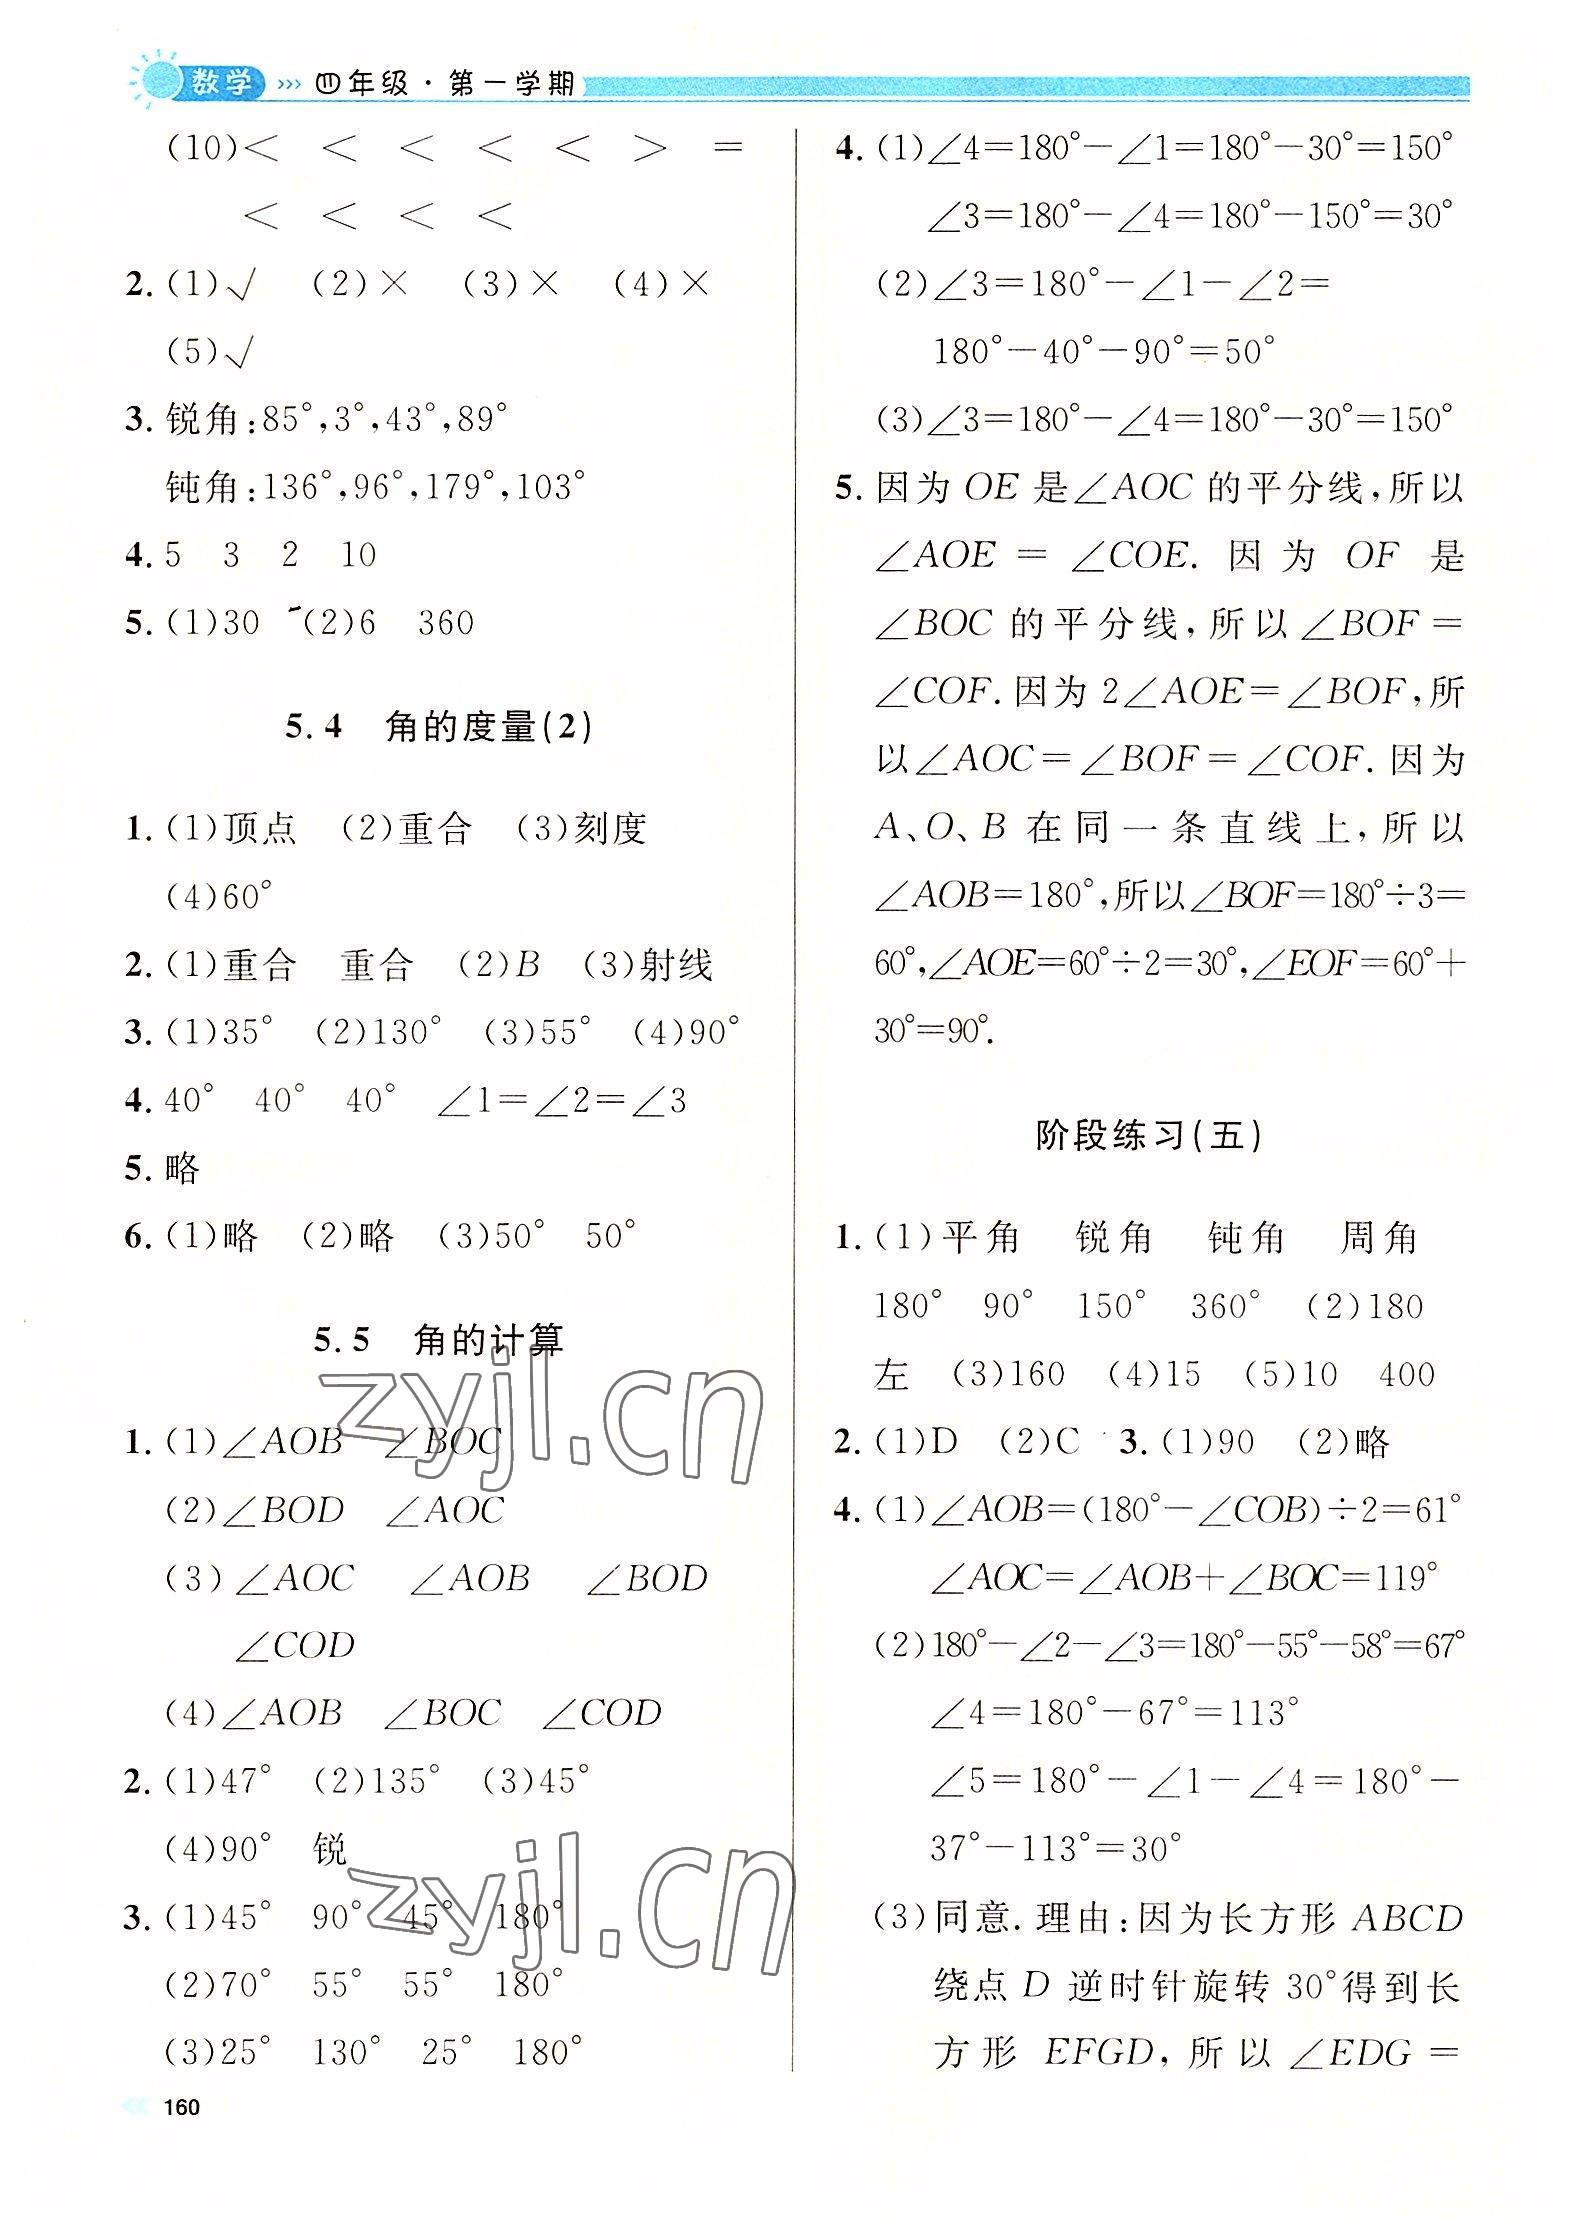 数学 >>> 四年级·第一学期
(10)< < < < < > =
< < < <
2. (1)√ (2)× (3)× (4)×
(5)√
3. 锐角:85°,3°,43°,89°
钝角:136°,96°,179°,103°
4. 5 3 2 10
5. (1)30 (2)6 360
5.4 角的度量(2)
1. (1)顶点 (2)重合 (3)刻度
(4)60°
2. (1)重合 重合 (2)B (3)射线
3. (1)35° (2)130° (3)55° (4)90°
4. 40° 40° 40° ∠1=∠2=∠3
5. 略
6. (1)略 (2)略 (3)50° 50°
5.5 角的计算
1. (1)∠AOB ∠BOC
(2)∠BOD ∠AOC
(3)∠AOC ∠AOB ∠BOD
∠COD
(4)∠AOB ∠BOC ∠COD
2. (1)47° (2)135° (3)45°
(4)90° 锐
3. (1)45° 90° 45° 180°
(2)70° 55° 55° 180°
(3)25° 130° 25° 180°
4. (1)∠4=180°-∠1=180°-30°=150°
∠3=180°-∠4=180°-150°=30°
(2)∠3=180°-∠1-∠2=
180°-40°-90°=50°
(3)∠3=180°-∠4=180°-30°=150°
5. 因为OE是∠AOC的平分线,所以
∠AOE=∠COE.因为OF是
∠BOC的平分线,所以∠BOF=
∠COF.因为2∠AOE=∠BOF,所
以∠AOC=∠BOF=∠COF.因为
A、O、B在同一条直线上,所以
∠AOB=180°,所以∠BOF=180°÷3=
60°,∠AOE=60°÷2=30°,∠EOF=60°+
30°=90°.
阶段练习(五)
1. (1)平角 锐角 钝角 周角
180° 90° 150° 360° (2)180
左 (3)160 (4)15 (5)10 400
2. (1)D (2)C 3. (1)90 (2)略
4. (1)∠AOB=(180°-∠COB)÷2=61°
∠AOC=∠AOB+∠BOC=119°
(2)180°-∠2-∠3=180°-55°-58°=67°
∠4=180°-67°=113°
∠5=180°-∠1-∠4=180°-
37°-113°=30°
(3)同意.理由:因为长方形ABCD
绕点D逆时针旋转30°得到长
方形EFGD,所以∠EDG=
160
zyjl.cn
zyjl.cn